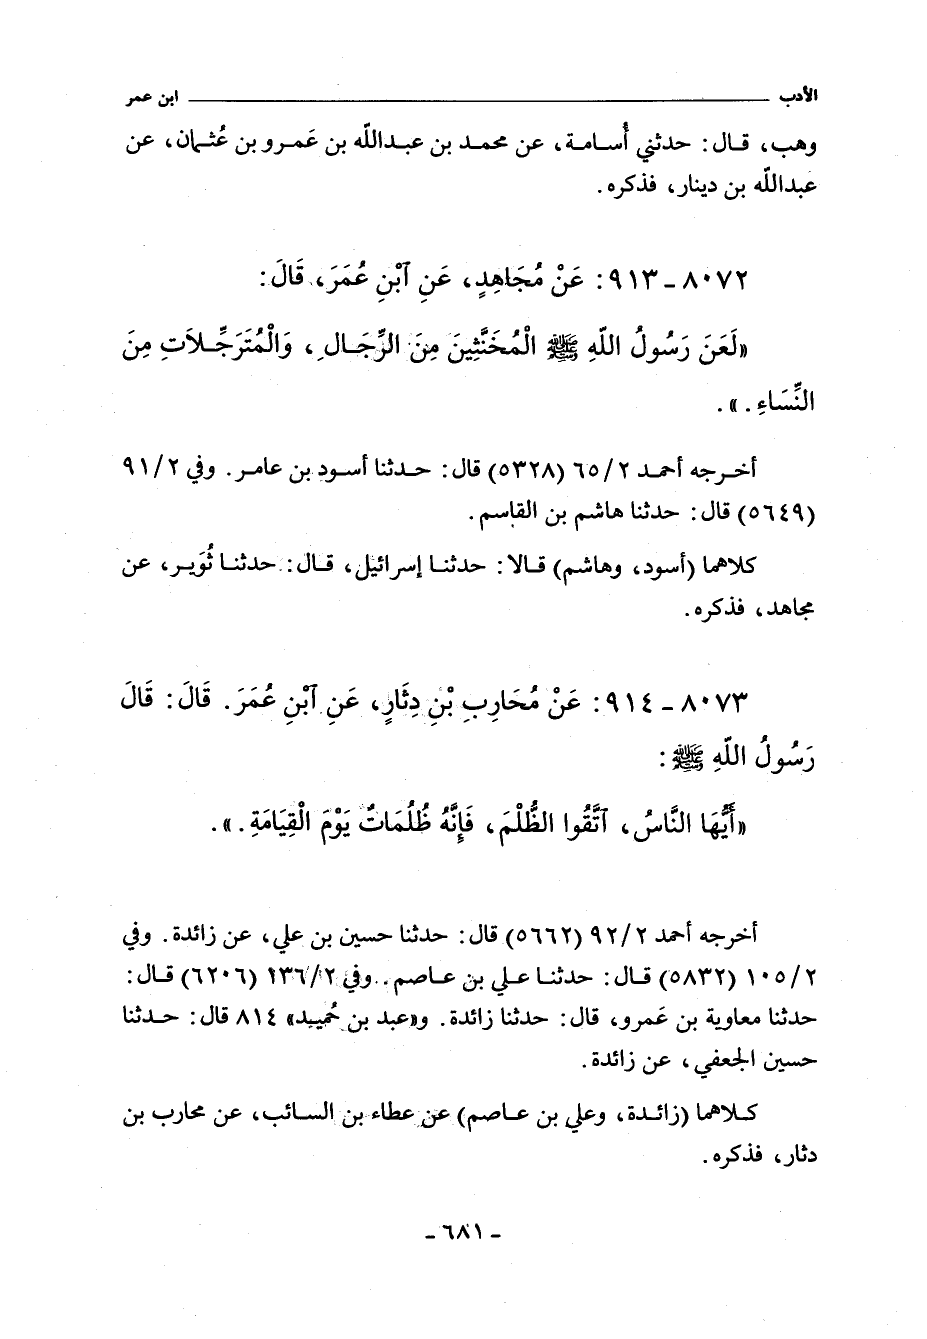 الأدب ــــــــ ابن عمر
وهب، قال: حدثني أُسامة، عن محمد بن عبدالله بن عَمرو بن عُثمان، عن
عبدالله بن دينار، فذكره.
٨٠٧٢ - ٩١٣: عَنْ مُجَاهِدٍ، عَنِ آبْنِ عُمَرَ، قَالَ:
«لَعَنَ رَسُولُ اللّهِ ﷺ الْمُخَنَّثِينَ مِنَ الرِّجَالِ، وَالْمُتَرَجِّلَاتِ مِنَ
النِّسَاءِ.».
أخرجه أحمد ٢/ ٦٥ (٥٣٢٨) قال: حدثنا أسود بن عامر. وفي ٢/ ٩١
(٥٦٤٩) قال: حدثنا هاشم بن القاسم.
كلاهما (أسود، وهاشم) قالا: حدثنا إسرائيل، قال: حدثنا ثُوَير، عن
مجاهد، فذكره.
٨٠٧٣ - ٩١٤: عَنْ مُحَارِبِ بْنِ دِثَارٍ، عَنِ آبْنِ عُمَرَ. قَالَ: قَالَ
رَسُولُ اللّهِ ﷺ:
«أَيُّهَا النَّاسُ، آتَّقُوا الظُّلْمَ، فَإِنَّهُ ظُلُمَاتٌ يَوْمَ الْقِيَامَةِ.».
أخرجه أحمد ٢/ ٩٢ (٥٦٦٢) قال: حدثنا حسين بن علي، عن زائدة. وفي
٢/ ١٠٥ (٥٨٣٢) قال: حدثنا علي بن عاصم. وفي ٢/ ١٣٦ (٦٢٠٦) قال:
حدثنا معاوية بن عَمرو، قال: حدثنا زائدة. و«عبد بن حُميد» ٨١٤ قال: حدثنا
حسين الجعفي، عن زائدة.
كلاهما (زائدة، وعلي بن عاصم) عن عطاء بن السائب، عن محارب بن
دثار، فذكره.
- ٦٨١ -